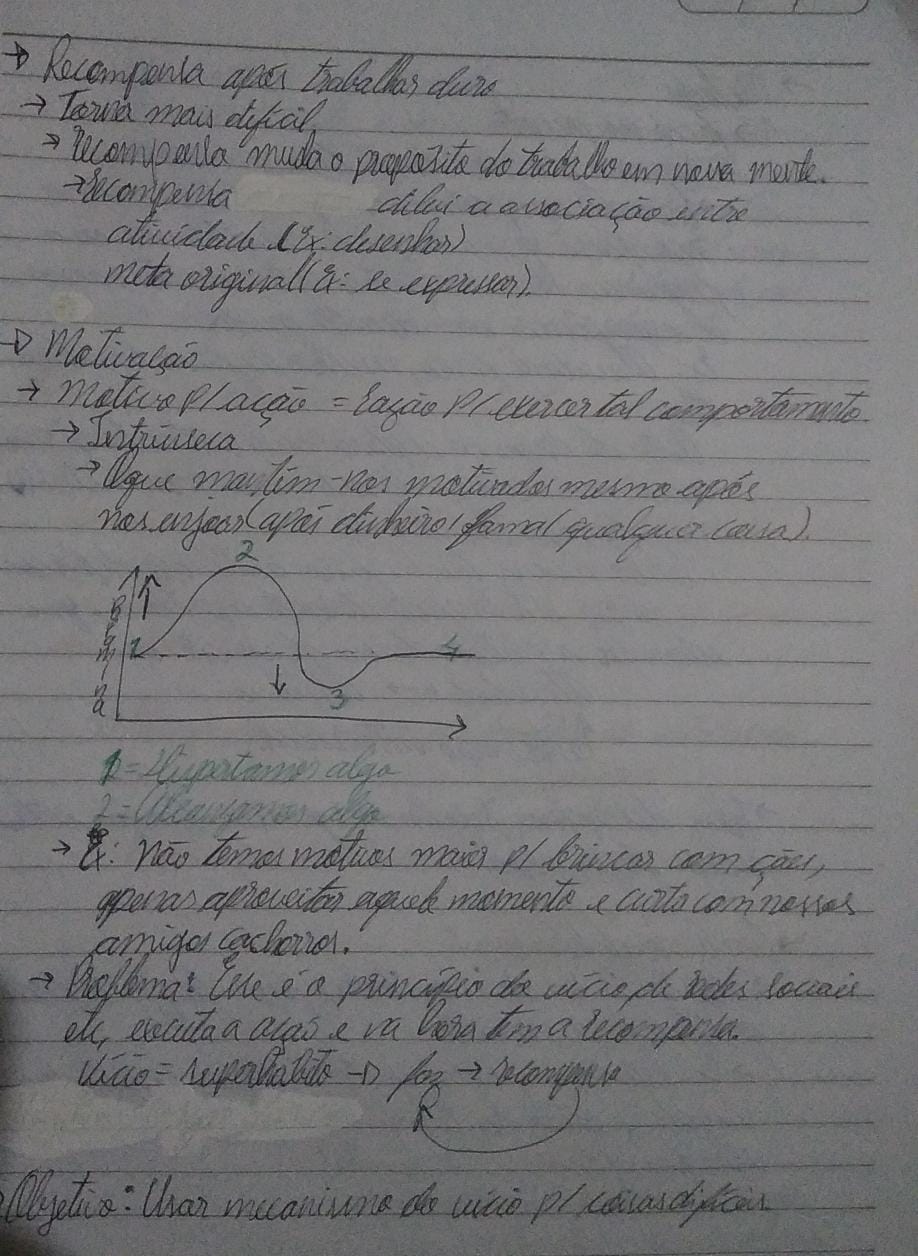 → Recompensa após trabalhar duro
→ Torna mais difícil
→ recompensa muda o propósito do trabalho em nossa mente.
→ recompensa dilui a associação entre
atividade (Ex: desenhar)
meta original (Ex: se expressar).
→ Motivação
→ Motivo p/ ação = razão p/ exercer tal comportamento
→ Intrínseca
→ O que mantém-nos motivados mesmo após
nos enjoar (após dinheiro/fama/qualquer coisa).
2
1
4
3
1 =
2 = Alcançamos algo
→ Ex: Não temos motivos maior p/ brincar com cães,
apenas aproveitar aquele momento e curto com nossos
amigos cachorros.
→ Problema: Esse é o princípio do vício de redes sociais
etc, executa a ação e na hora tem a recompensa.
Vício = superhábito → faz → recompensa
Objetivo: Usar mecanismo do vício p/ coisas difíceis